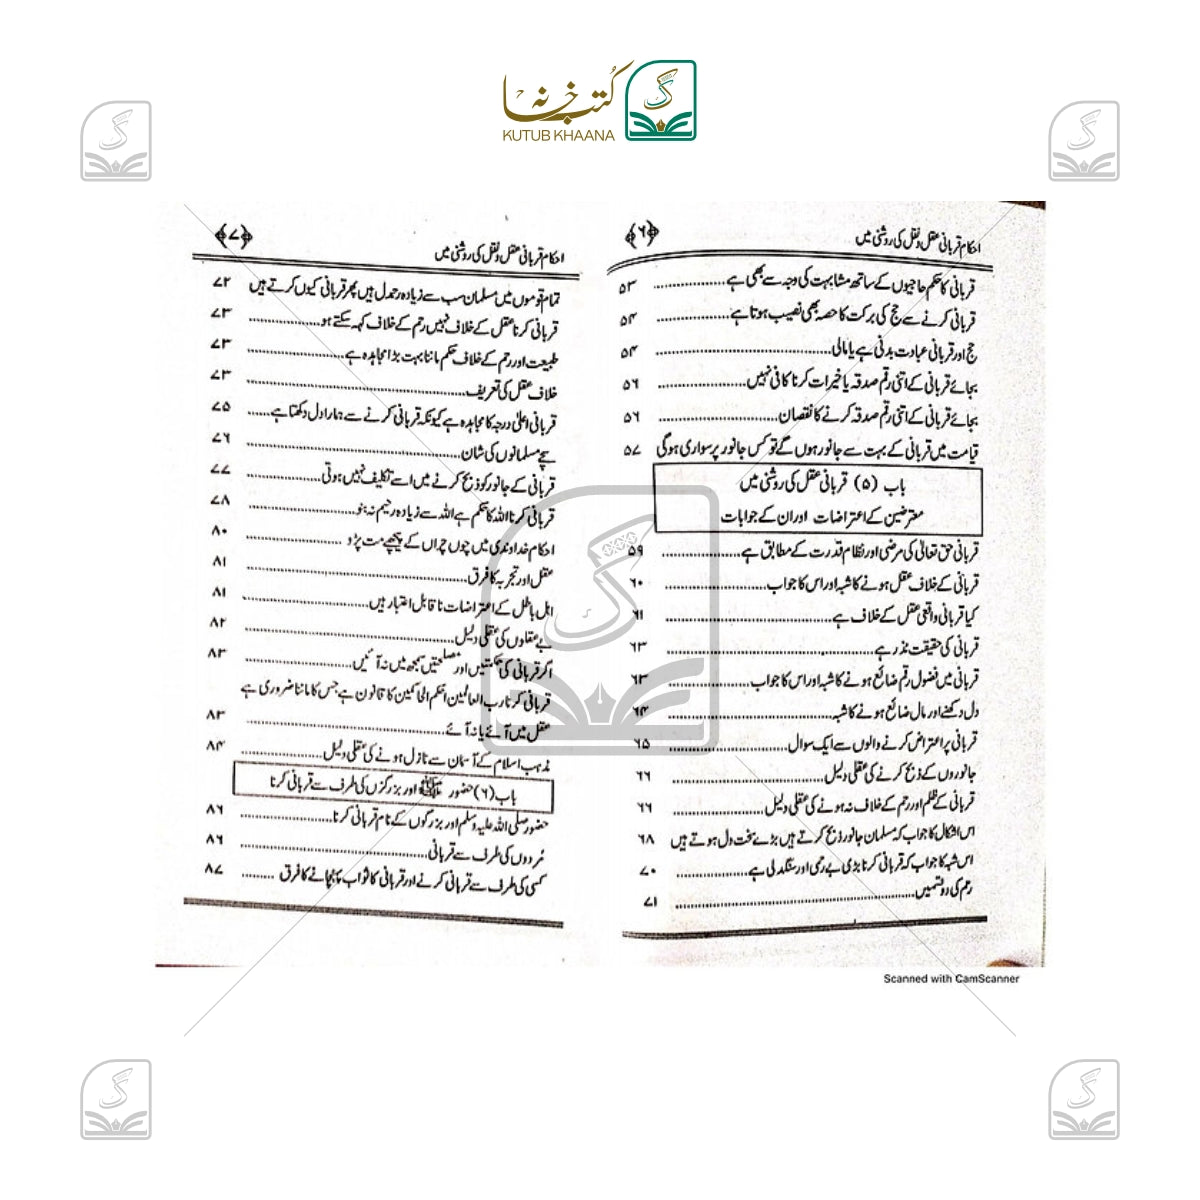 کتب خانہ
KUTUB KHAANA
احکام قربانی عقل و نقل کی روشنی میں ﴿۶﴾
قربانی کا حکم حاجیوں کے ساتھ مشابہت کی وجہ سے بھی ہے ........ ۵۳
قربانی کرنے سے حج کی برکت کا حصہ بھی نصیب ہوتا ہے ........ ۵۴
حج اور قربانی عبادت بدنی ہے یا مالی ........ ۵۴
بجائے قربانی کے اتنی رقم صدقہ یا خیرات کرنا کافی نہیں ........ ۵۶
بجائے قربانی کے اتنی رقم صدقہ کرنے کا نقصان ........ ۵۶
قیامت میں قربانی کے بہت سے جانور ہوں گے تو کس جانور پر سواری ہوگی ۵۷
باب (۵) قربانی عقل کی روشنی میں
معترضین کے اعتراضات اور ان کے جوابات
قربانی حق تعالیٰ کی مرضی اور نظام قدرت کے مطابق ہے ........ ۵۹
قربانی کے خلاف عقل ہونے کا شبہ اور اس کا جواب ........ ۶۰
کیا قربانی واقعی عقل کے خلاف ہے ........ ۶۱
قربانی کی حقیقت نذر ہے ........ ۶۳
قربانی میں فضول رقم ضائع ہونے کا شبہ اور اس کا جواب ........ ۶۳
دل دکھنے اور مال ضائع ہونے کا شبہ ........ ۶۴
قربانی پر اعتراض کرنے والوں سے ایک سوال ........ ۶۵
جانوروں کے ذبح کرنے کی عقلی دلیل ........ ۶۶
قربانی کے ظلم اور رحم کے خلاف نہ ہونے کی عقلی دلیل ........ ۶۶
اس اشکال کا جواب کہ مسلمان جانور ذبح کرتے ہیں بڑے سخت دل ہوتے ہیں ۶۸
اس شبہ کا جواب کہ قربانی کرنا بڑی بے رحمی اور سنگدلی ہے ........ ۷۰
رحم کی دو قسمیں ........ ۷۱
احکام قربانی عقل و نقل کی روشنی میں ﴿۷﴾
تمام قوموں میں مسلمان سب سے زیادہ رحمدل ہیں پھر قربانی کیوں کرتے ہیں ۷۲
قربانی کرنا عقل کے خلاف نہیں رحم کے خلاف کہہ سکتے ہو ........ ۷۳
طبیعت اور رحم کے خلاف حکم ماننا بہت بڑا مجاہدہ ہے ........ ۷۳
خلاف عقل کی تعریف ........ ۷۳
قربانی اعلیٰ درجہ کا مجاہدہ ہے کیونکہ قربانی کرنے سے ہمارا دل دکھتا ہے ...... ۷۵
سچے مسلمانوں کی شان ........ ۷۶
قربانی کے جانور کو ذبح کرنے میں اسے تکلیف نہیں ہوتی ........ ۷۷
قربانی کرنا اللہ کا حکم ہے اللہ سے زیادہ رحیم نہ بنو ........ ۷۸
احکام خداوندی میں چوں چراں کے پیچھے مت پڑو ........ ۸۰
عقل اور تجربہ کا فرق ........ ۸۱
اہل باطل کے اعتراضات ناقابل اعتبار ہیں ........ ۸۱
بے عقلوں کی عقلی دلیل ........ ۸۲
اگر قربانی کی حکمتیں اور مصلحتیں سمجھ میں نہ آئیں ........ ۸۳
قربانی کرنا رب العالمین احکم الحاکمین کا قانون ہے جس کا ماننا ضروری ہے
عقل میں آئے یا نہ آئے ........ ۸۳
مذہب اسلام کے آسمان سے نازل ہونے کی عقلی دلیل ........ ۸۴
باب (۶) حضور ﷺ اور بزرگوں کی طرف سے قربانی کرنا
حضور صلی اللہ علیہ وسلم اور بزرگوں کے نام قربانی کرنا ........ ۸۶
مُردوں کی طرف سے قربانی ........ ۸۶
کسی کی طرف سے قربانی کرنے اور قربانی کا ثواب پہنچانے کا فرق ........ ۸۷
Scanned with CamScanner